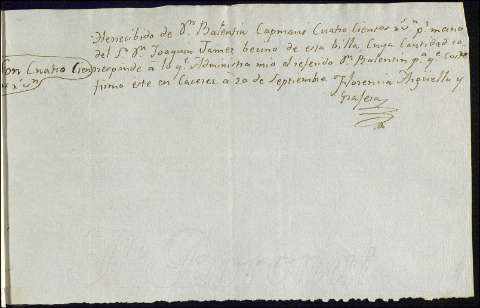 He recibido de Dn. Balentin Capmano Cuatro Cientos rs. vn. pr. mano
del Sr. Dn. Joaquin Jamez becino de esta billa, Cuya Cantidad co
rresponde á la qe. Administra mio el referido Dn. Balentin pa. qe. Coste
firmo este en Caceres á 20 de Septiembre Florencia
y
Son Cuatro Cien
tos rs. vn.